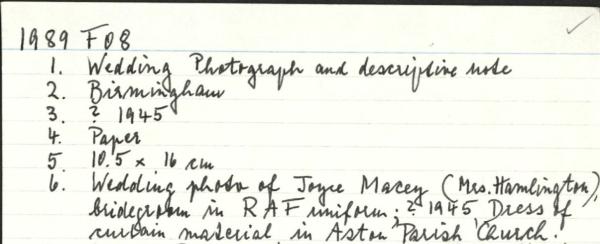 1989 F08
1. Wedding Photograph and descriptive note
2. Birmingham
3. ? 1945
4. Paper
5. 10.5 x 16 cm
6. Wedding photo of Joyce Macey (Mrs. Hamlington),
bridegroom in RAF uniform; ? 1945 Dress of
curtain material in Aston Parish Church.